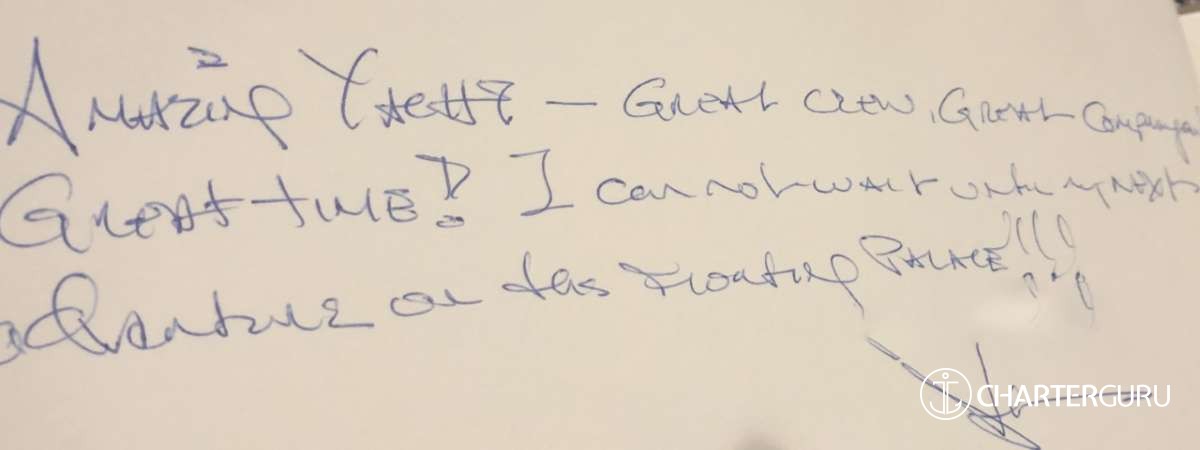 Amazing Yacht - Great crew, Great Company
Great time! I cannot wait until my next
adventure on this Floating Palace!!!
CHARTERGURU